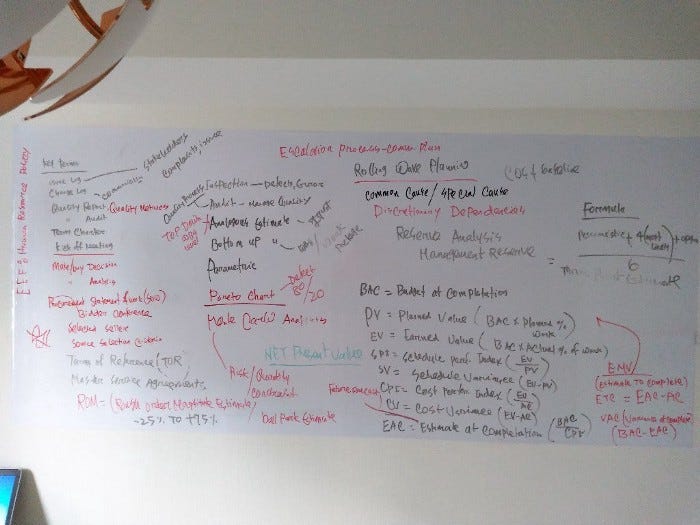 Escalation process-comm. Plan
Key Terms
Issue Log
Change Log
communication
Stakeholders
Complaints, issue
Quality Report
" Audit
Quality Metrics
Team Charter
Kick off Meeting
Make/buy Decision
" Analysis
Procurement Statement of work (SOW)
Bidder Conference
Selected seller
Source Selection Criteria
Terms of Reference (TOR)
Master Service Agreements
ROM = (Rough order Magnitude Estimate)
-25% TO +75%
Ball Park Estimate
Inspection - Defects, Errors
Audit
Analogous Estimate
Top Down
Bottom up
Parametric
Pareto Chart
Defect
80/20
Monte Carlo Analysis
NET Present Value
Risk/Quantity
Rolling Wave Planning
Cost baseline
Common Cause / Special Cause
Discretionary Dependencies
Reserve Analysis
Management Reserve
Formula
=
6
BAC = Budget at Completation
PV = Planned Value (BAC x Planned % work)
EV = Earned Value (BAC x Actual % of work)
SPI = Schedule perf. Index (EV/PV)
SV = Schedule Variance (EV-PV)
CPI = Cost perfor. Index (EV/AC)
CV = Cost Variance (EV-AC)
EAC = Estimate at completation (BAC/CPI)
EMV
(Estimate To complete)
ETC = EAC-AC
(BAC-EAC)